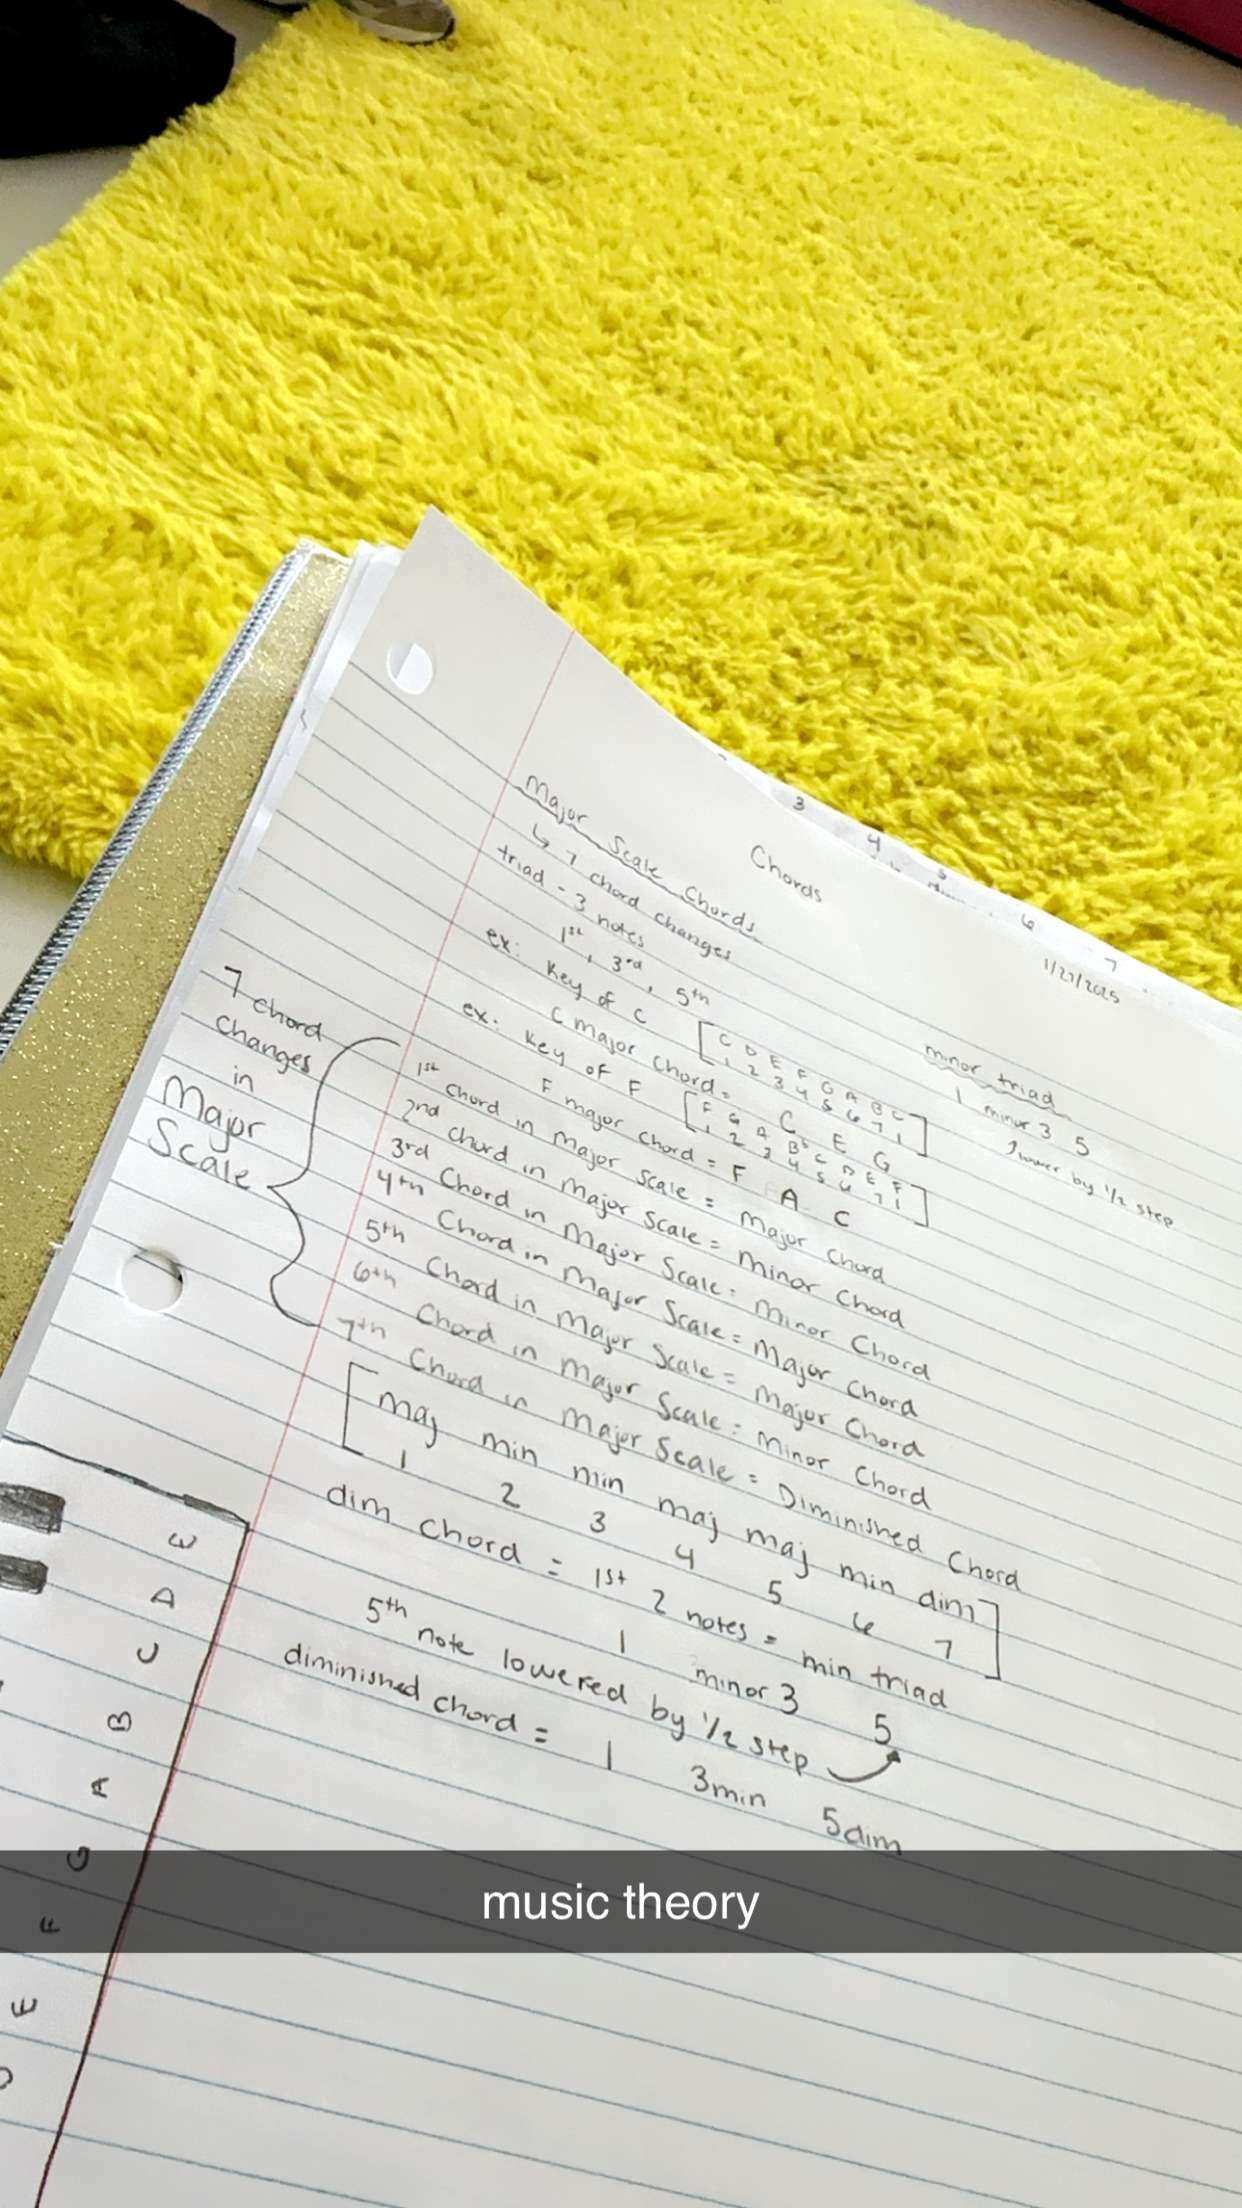 3 4 5 6 7
Chords
1/27/2025
Major Scale Chords
↳ 7 chord changes
triad - 3 notes
1st, 3rd, 5th
ex: Key of C [C D E F G A B C]
1 2 3 4 5 6 7 1
C major chord = C E G
ex: Key of F [F G A Bb C D E F]
1 2 3 4 5 6 7 1
F major chord = F A C
minor triad
1 minor 3 5
lower by 1/2 step
7 chord
changes
in
Major
Scale
1st chord in Major Scale = Major Chord
2nd Chord in Major Scale = Minor Chord
3rd Chord in Major Scale = Minor Chord
4th Chord in Major Scale = Major Chord
5th Chord in Major Scale = Major Chord
6th Chord in Major Scale = Minor Chord
7th Chord in Major Scale = Diminished Chord
[maj min min maj maj min dim]
1 2 3 4 5 6 7
dim chord = 1st 2 notes = min triad
1 minor 3 5
5th note lowered by 1/2 step
diminished chord = 1 3min 5dim
E
F
G
A
B
C
A
music theory